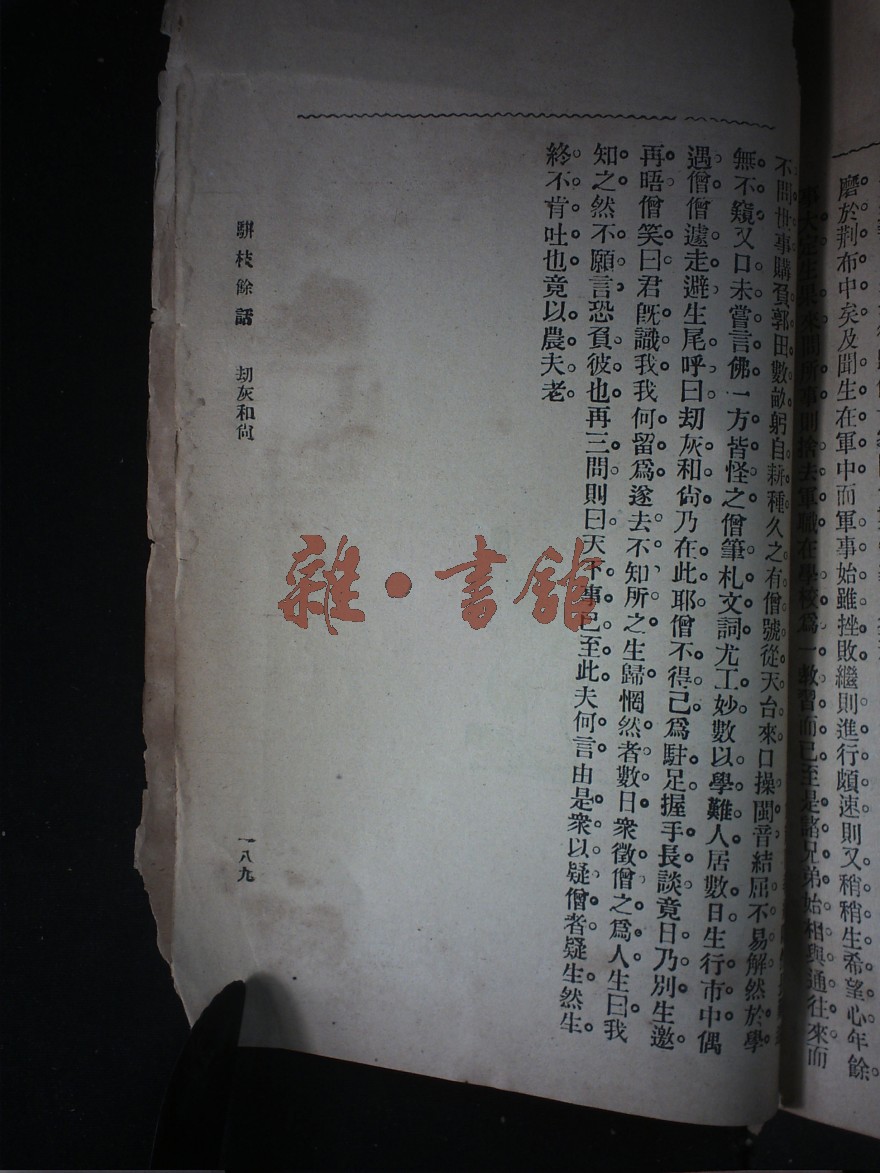 磨於荆布中矣及聞生在軍中而軍事始雖挫敗繼則進行頗速則又稍稍生希望心年餘。
事大定生果來問所事則捨去軍職在學校爲一教習而已至是諸兄弟始相與通往來而
不問世事購負郭田數畝躬自耕種久之有僧號從天台來口操閩音結屈不易解然於學
無不窺又口未嘗言佛一方皆怪之僧筆札文詞尤工妙數以學難人居數日生行市中偶
遇僧僧遽走避生尾呼曰刧灰和尙乃在此耶僧不得已爲駐足握手長談竟日乃別生邀
再晤僧笑曰君旣識我我何留爲遂去不知所之生歸惘然者數日衆徵僧之爲人生曰我
知之然不願言恐負彼也再三問則曰天下事已至此夫何言由是衆以疑僧者疑生然生
終不肯吐也竟以農夫老。
駢枝餘話 刧灰和尙 一八九
雜·書館